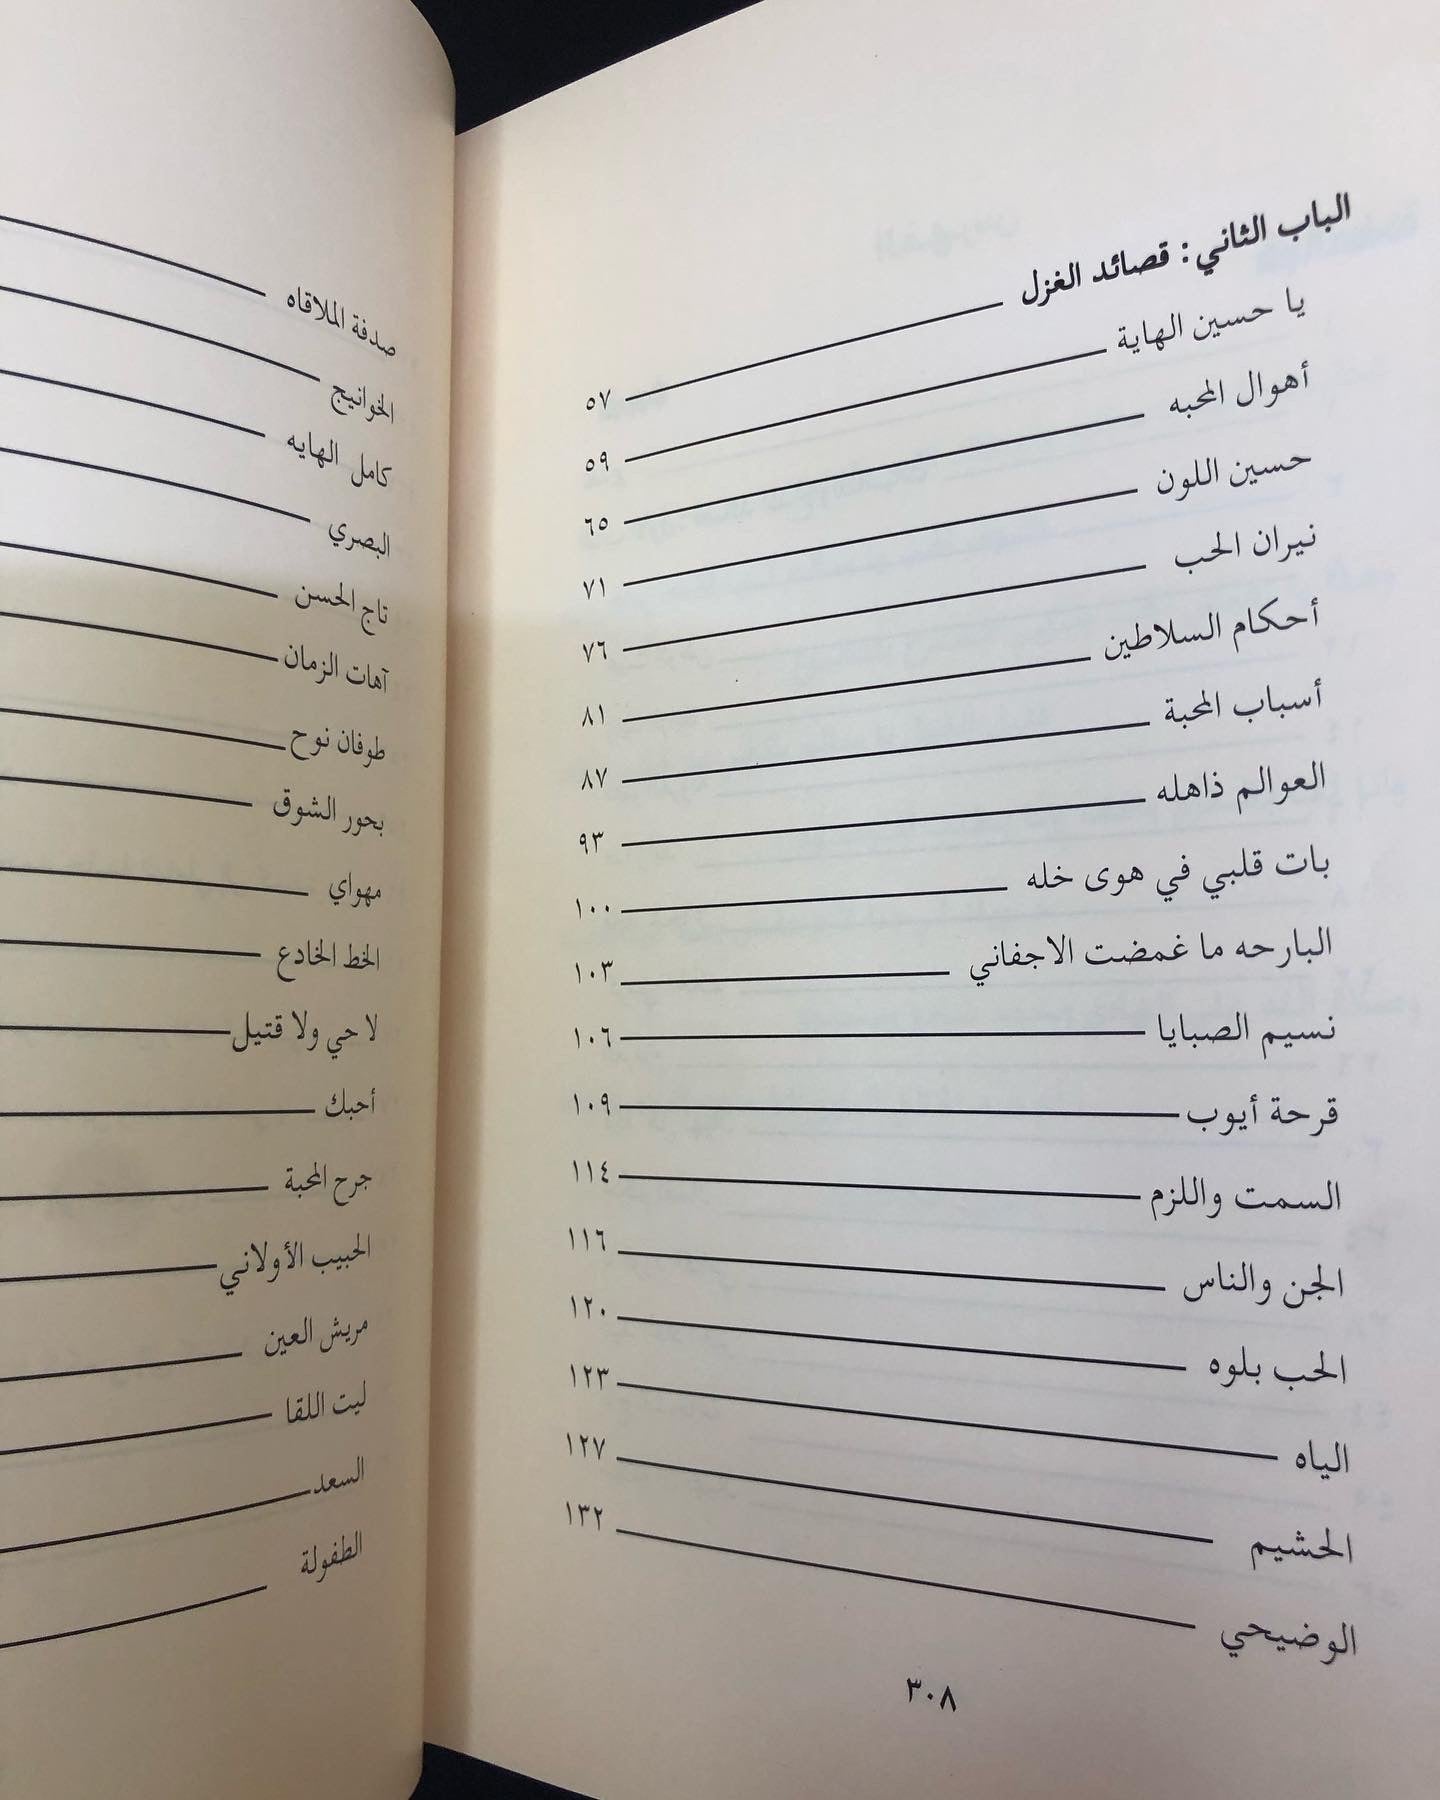 الباب الثاني : قصائد الغزل ٥٧
يا حسين الهاية ٥٩
أهوال المحبه ٦٥
حسين اللون ٧١
نيران الحب ٧٦
أحكام السلاطين ٨١
أسباب المحبة ٨٧
العوالم ذاهله ٩٣
بات قلبي في هوى خله ١٠٠
البارحه ما غمضت الاجفاني ١٠٣
نسيم الصبايا ١٠٦
قرحة أيوب ١٠٩
السمت واللزم ١١٤
الجن والناس ١١٦
الحب بلوه ١٢٠
الياه ١٢٣
الحشيم ١٢٧
الوضيحي ١٣٢
٣٠٨
صدفة الملاقاه
الخوانيج
كامل الهايه
البصري
تاج الحسن
آهات الزمان
طوفان نوح
بحور الشوق
مهواي
الخط الخادع
لا حي ولا قتيل
أحبك
جرح المحبة
الحبيب الأولاني
مريش العين
ليت اللقا
السعد
الطفولة